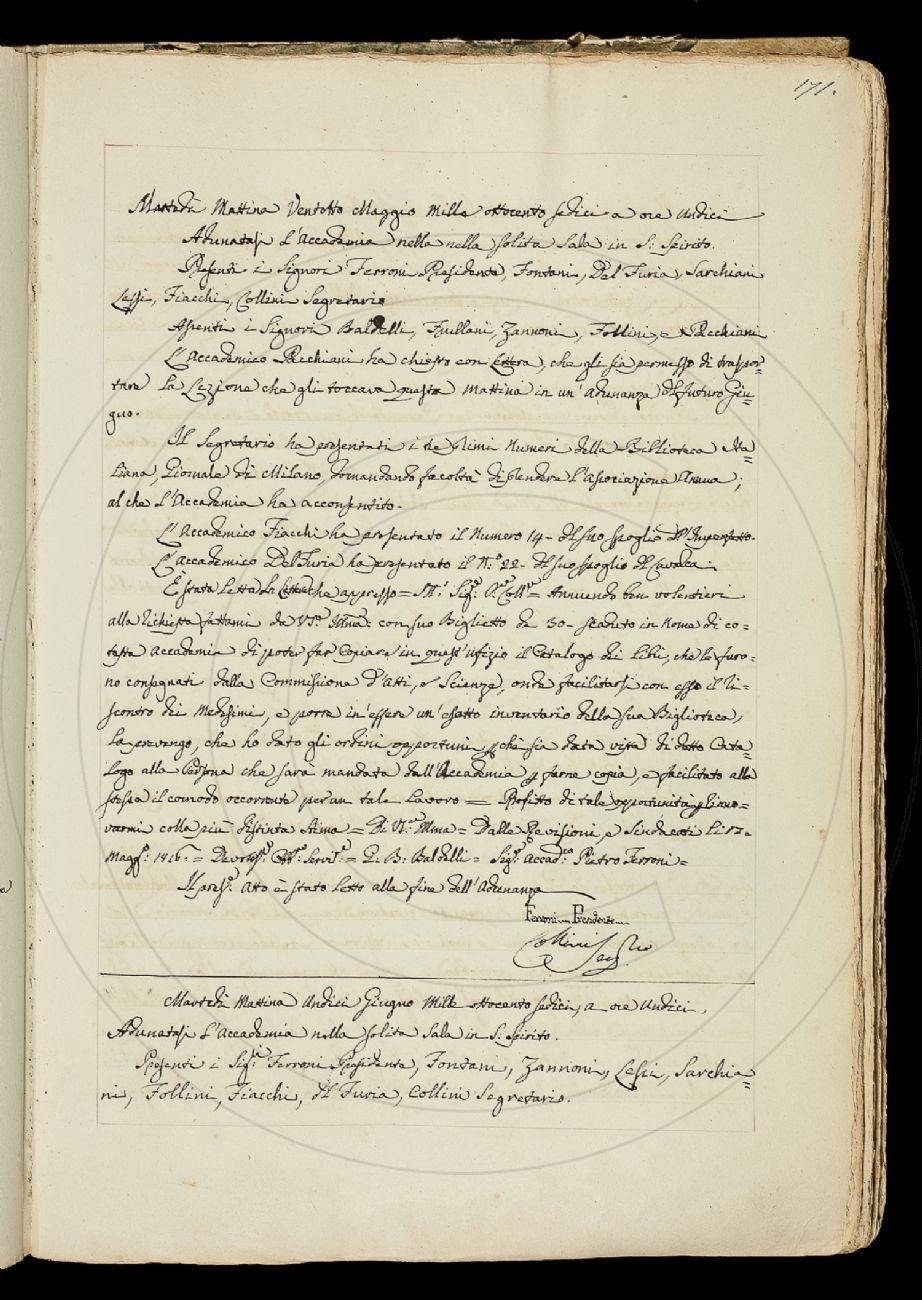 171.
Martedì Mattina Ventotto Maggio mille ottocento sedici a ore undici
Adunatasi l'Accademia nella nella solita Sala in S: Spirito.
Presenti i Signori Ferroni Presidente, Fontani, Del Furia, Sarchiani
Lessi, Fiacchi, Collini Segretario
Assenti i Signori Baldelli, Fiullani, Zannoni, Follini, e Rcchiani
L'Accademico Rcchiani ha chiesto con lettera, che gli sia permesso di traspor=
tare la Lezione che gli toccava questa mattina in un'adunanza del futuro Giu=
gno.
Il Segretario ha presentati i tre primi Numeri della Biblioteca Ita=
liana, Giornale di Milano, domandando facoltà di prendere l'Associazione Annua;
al che l'Accademia ha acconsentito.
L'Accademico Fiacchi ha presentato il Numero 14- del suo spoglio dell'Imperfetto.
L'Accademico Del Furia ha presentato il N.º 22- del suo spoglio del Cavalca.
È stata letta la Lettera che appresso = Ill: Sig: = Annuendo ben volentieri
alla richiesta fattami da VS: Illma: con suo Biglietto de 30- scaduto in Nome di co=
testa Accademia di poter far copiare in quest'ufizio il Catalogo dei libri, che le furo=
no consegnati dalla Commissione d'Arti, e Scienze, onde facilitarsi con esso il ri=
scontro dei Medesimi, e porre in essere un'esatto inventario della sua Biblioteca,
la prevengo, che ho dato gli ordini opportuni, perchè sia data vista di detto Cata=
logo alla Persona che sarà mandata dall'Accademia p farne copia, e facilitato alla
stessa il comodo occorrente per un tale Lavoro = Profitto di tale opportunità p rinno=
varmi colla più distinta stima = Di VS: Illma = Dalle Revisioni, e Sindacati li 17.
Magg: 1816. = Devotiss: Obb: Servit: = G: B: Baldelli = Sig: Accad:co Pietro Ferroni =
Il pres: Atto è stato letto alla fine dell'Adunanza
Ferroni Presidente
Collini Seg.rio
Martedì Mattina Undici Giugno Mille ottocento sedici, a ore Undici.
Adunatasi l'Accademia nella solita Sala in S: Spirito.
Presenti i Sig: Ferroni Presidente, Fontani, Zannoni, Lessi, Sarchia=
ni, Follini, Fiacchi, del Furia, Collini Segretario.